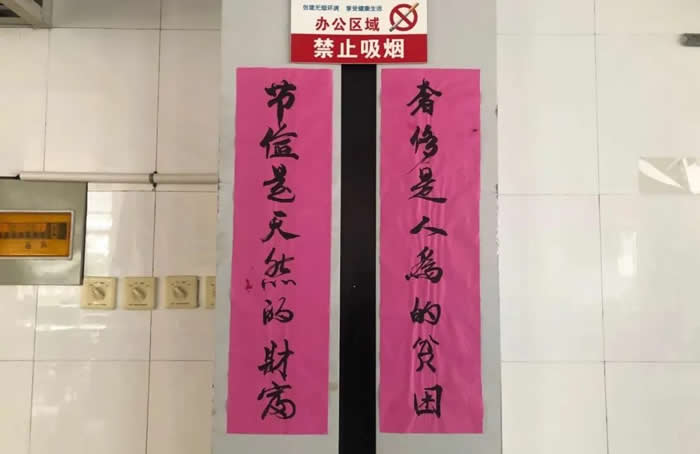 创建无烟环境 享受健康生活
办公区域
禁止吸烟
奢侈是人為的贫困
节俭是天然的财富